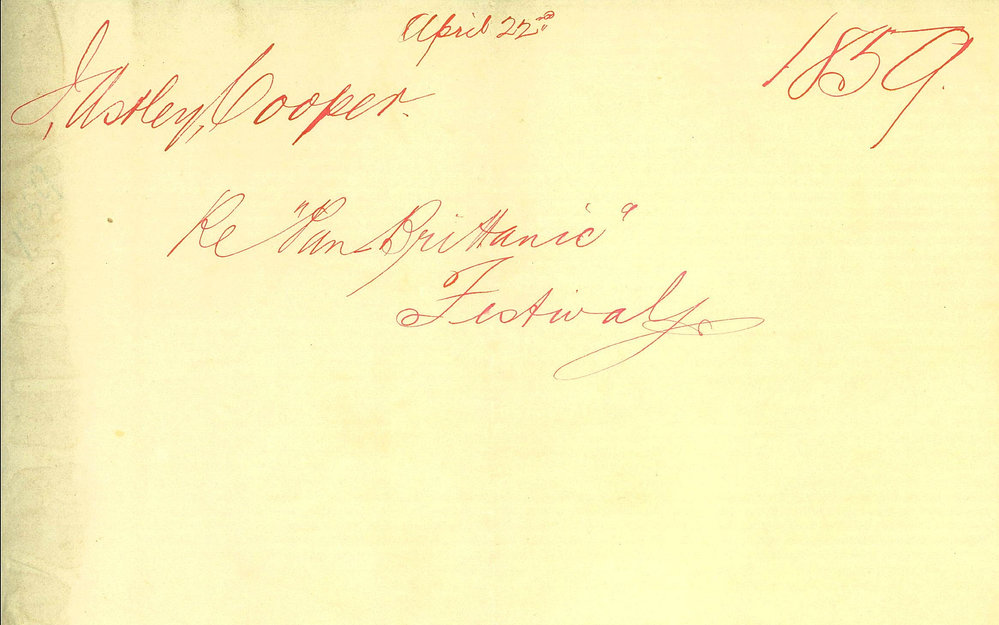 April 22nd
J, Astley, Cooper. 1859.
Re "Pan Brittanic"
Festival